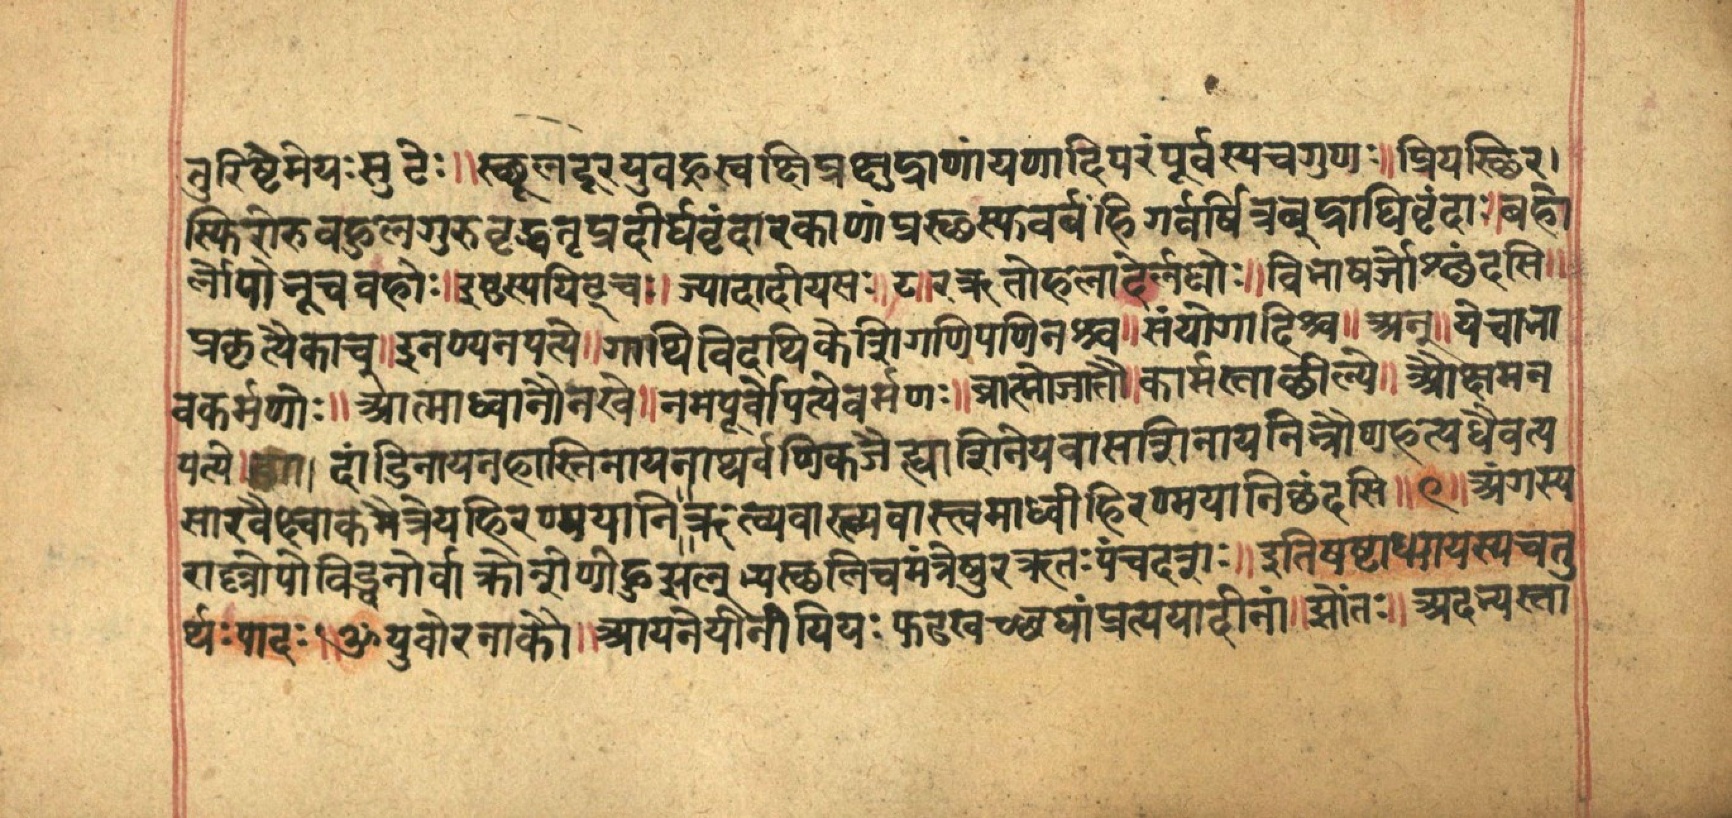 तुरिष्ठेमेयःसु टेः॥स्थूलदूरयुवह्रस्वक्षिप्रक्षुद्राणांयणादिपरंपूर्वस्यचगुणः॥प्रियस्थिर।
स्फिरोरुबहुलगुरुवृद्धतृप्रदीर्घवृंदारकाणांप्रस्थस्फवर्बंहिगर्वर्षित्रब्द्राघिवृंदाः॥बहो
र्लोपोभूचबहोः॥इष्ठस्ययिट्चः॥ज्यादादीयसः॥८॥रऋतोहलादेर्लघोः॥विभाषर्जोश्छंदसि॥
प्रकृत्यैकाच्॥इनण्यनपत्ये॥गाथिविदथिकेशिगणिपणिनश्च॥संयोगादिश्च॥अन्॥येचाभा
वकर्मणोः॥आत्माध्वानौनखे॥नमपूर्वोपत्येवर्मणः॥ब्राह्मोजातौ॥कार्मस्ताच्छील्ये॥औक्षमन
पत्ये॥ दांडिनायनहास्तिनायनाथर्वणिकजैह्माशिनेयवासाशिनायनिभ्रौणहत्यधैवत्य
सारवैक्ष्वाकमैत्रेयहिरण्मयानि॥ऋत्व्यवास्त्व्यवास्त्वमाध्वीहिरण्मयानिछंदसि॥९॥अंगस्य
राल्लोपोविड्वनोर्वाक्रोनुीणीहुझलूध्यस्थलिचमंत्रेषुरऋतःपंचदश॥इतिषष्टाध्यायस्यचतु
र्थःपादः॥ॐयुवोरनाकौ॥आयनेयीनीयियःफढखच्छघांप्रत्ययादीनां॥झोंतः॥अदभ्यस्ता